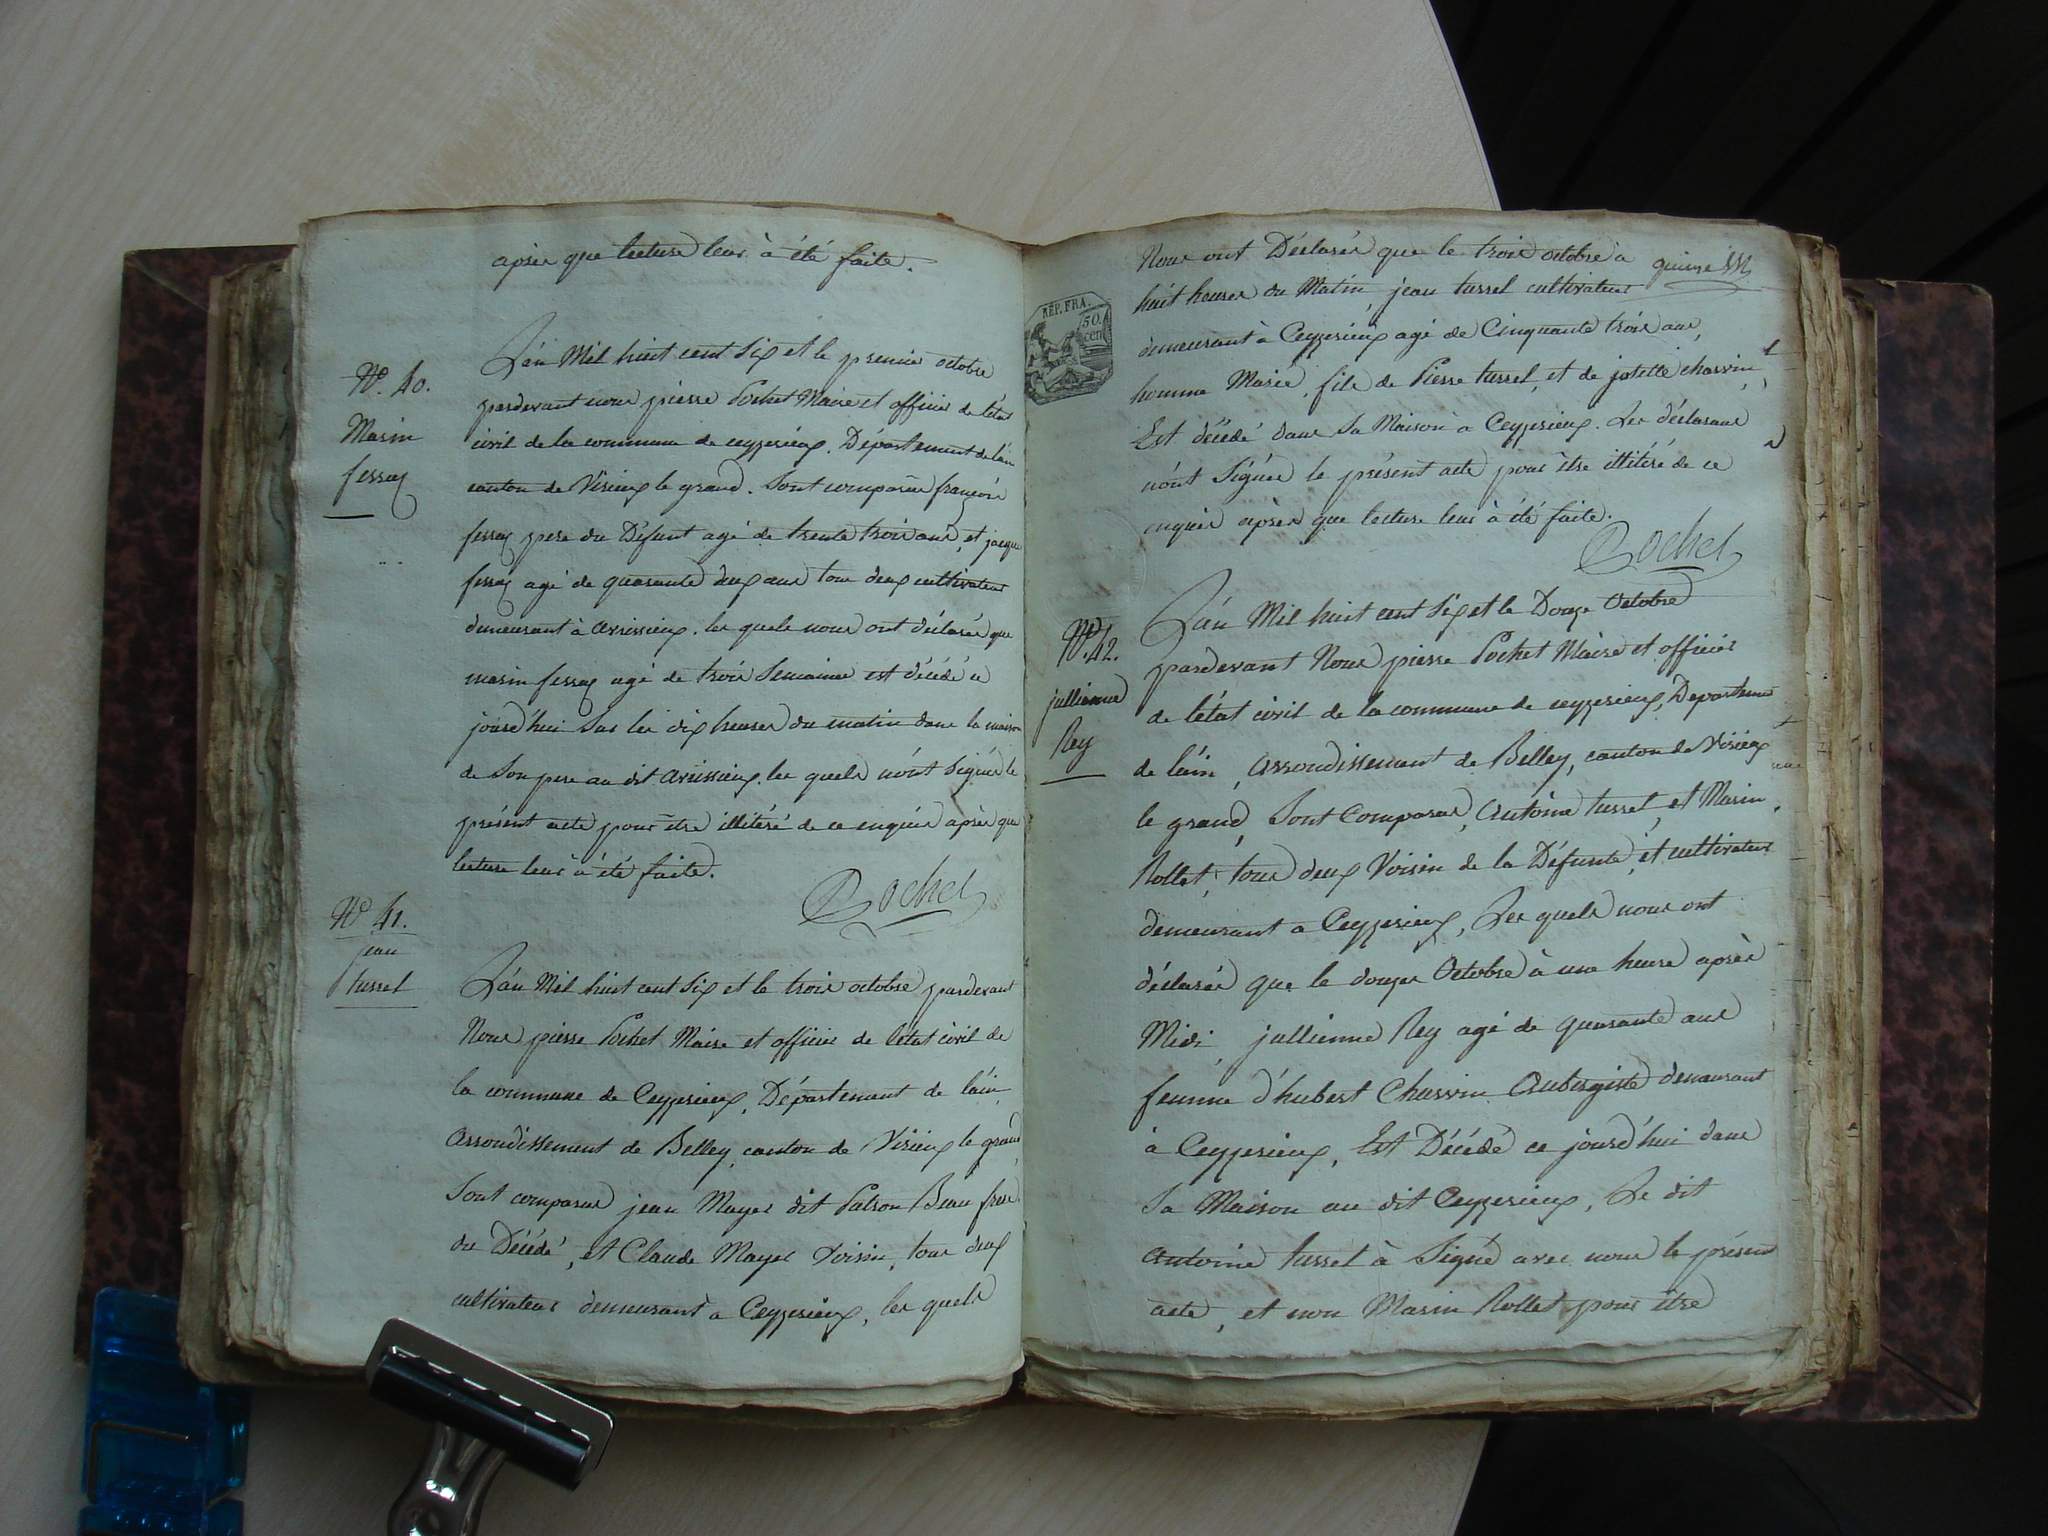 après que lecture leur à été faite.
No. 40.
Marin
ferraz
L'an Mil huit cent Six et le premier octobre
pardevant nous pierre Pochet Maire et officier de l'état
civil de la commune de ceyzerieux. Département de l'ain
canton de Virieux le grand. Sont comparus françois
ferraz pere du Défunt agé de trente trois ans, et jacque
ferraz agé de quarante deux ans tous deux cultivateurs
demeurant à avrissieux. les quels nous ont déclarés que
marin ferraz agé de trois Semaines est décédé a
jourd'hui Sur les dix heures du matin dans la maison
de Son pere au dit avrissieux. les quels n'ont Signés le
présent acte pour être illitéré de ce enquis après que
lecture leur à été faite.
Pochet
No 41.
jean
tussel
L'an Mil huit cent Six et le trois octobre pardevant
Nous pierre Pochet Maire et officier de l'état civil de
la commune de Ceyzerieux, Département de l'ain
Arrondissement de Belley, canton de Virieux le grand
Sont comparus jean Mayer dit Patron Beau frere
du Décédé, et Claude Mayer Voisin, tous deux
cultivateurs demeurant a Ceyzerieux, les quels
RÉP. FRA.
50.
cen
Nous ont Déclarés que le trois octobre a
huit heures du Matin, jean tussel cultivateur
demeurant à Ceyzerieux agé de Cinquante trois ans,
homme Marié, fils de Pierre tussel, et de josette charvin,
Est décédé dans Sa Maison à Ceyzerieux. Les déclarans
n'ont Signés le présent acte pour être illitéré de ce
enquis après que lecture leur à été faite.
Pochet
No. 42.
jullienne
Rey
L'an Mil huit cent Six et le Douze Octobre
pardevant Nous pierre Pochet Maire et officier
de l'état civil de la commune de ceyzerieux, Departement
de l'ain, Arrondissement de Belley, canton de Virieux
le grand, Sont Comparus, Antoine tussel, et Marin
Rollet, tous deux Voisin de la Défunte, et cultivateur
demeurant a Ceyzerieux, Les quels nous ont
déclarés que le douze Octobre à une heure après
Midi, jullienne Rey agé de quarante ans
femme d'hubert Charvin Aubergiste demeurant
à Ceyzerieux, Est Décédé ce jourd'hui dans
Sa Maison au dit Ceyzerieux, Le dit
Antoine tussel à Signé avec nous le présent
acte, et non Marin Rollet pour être